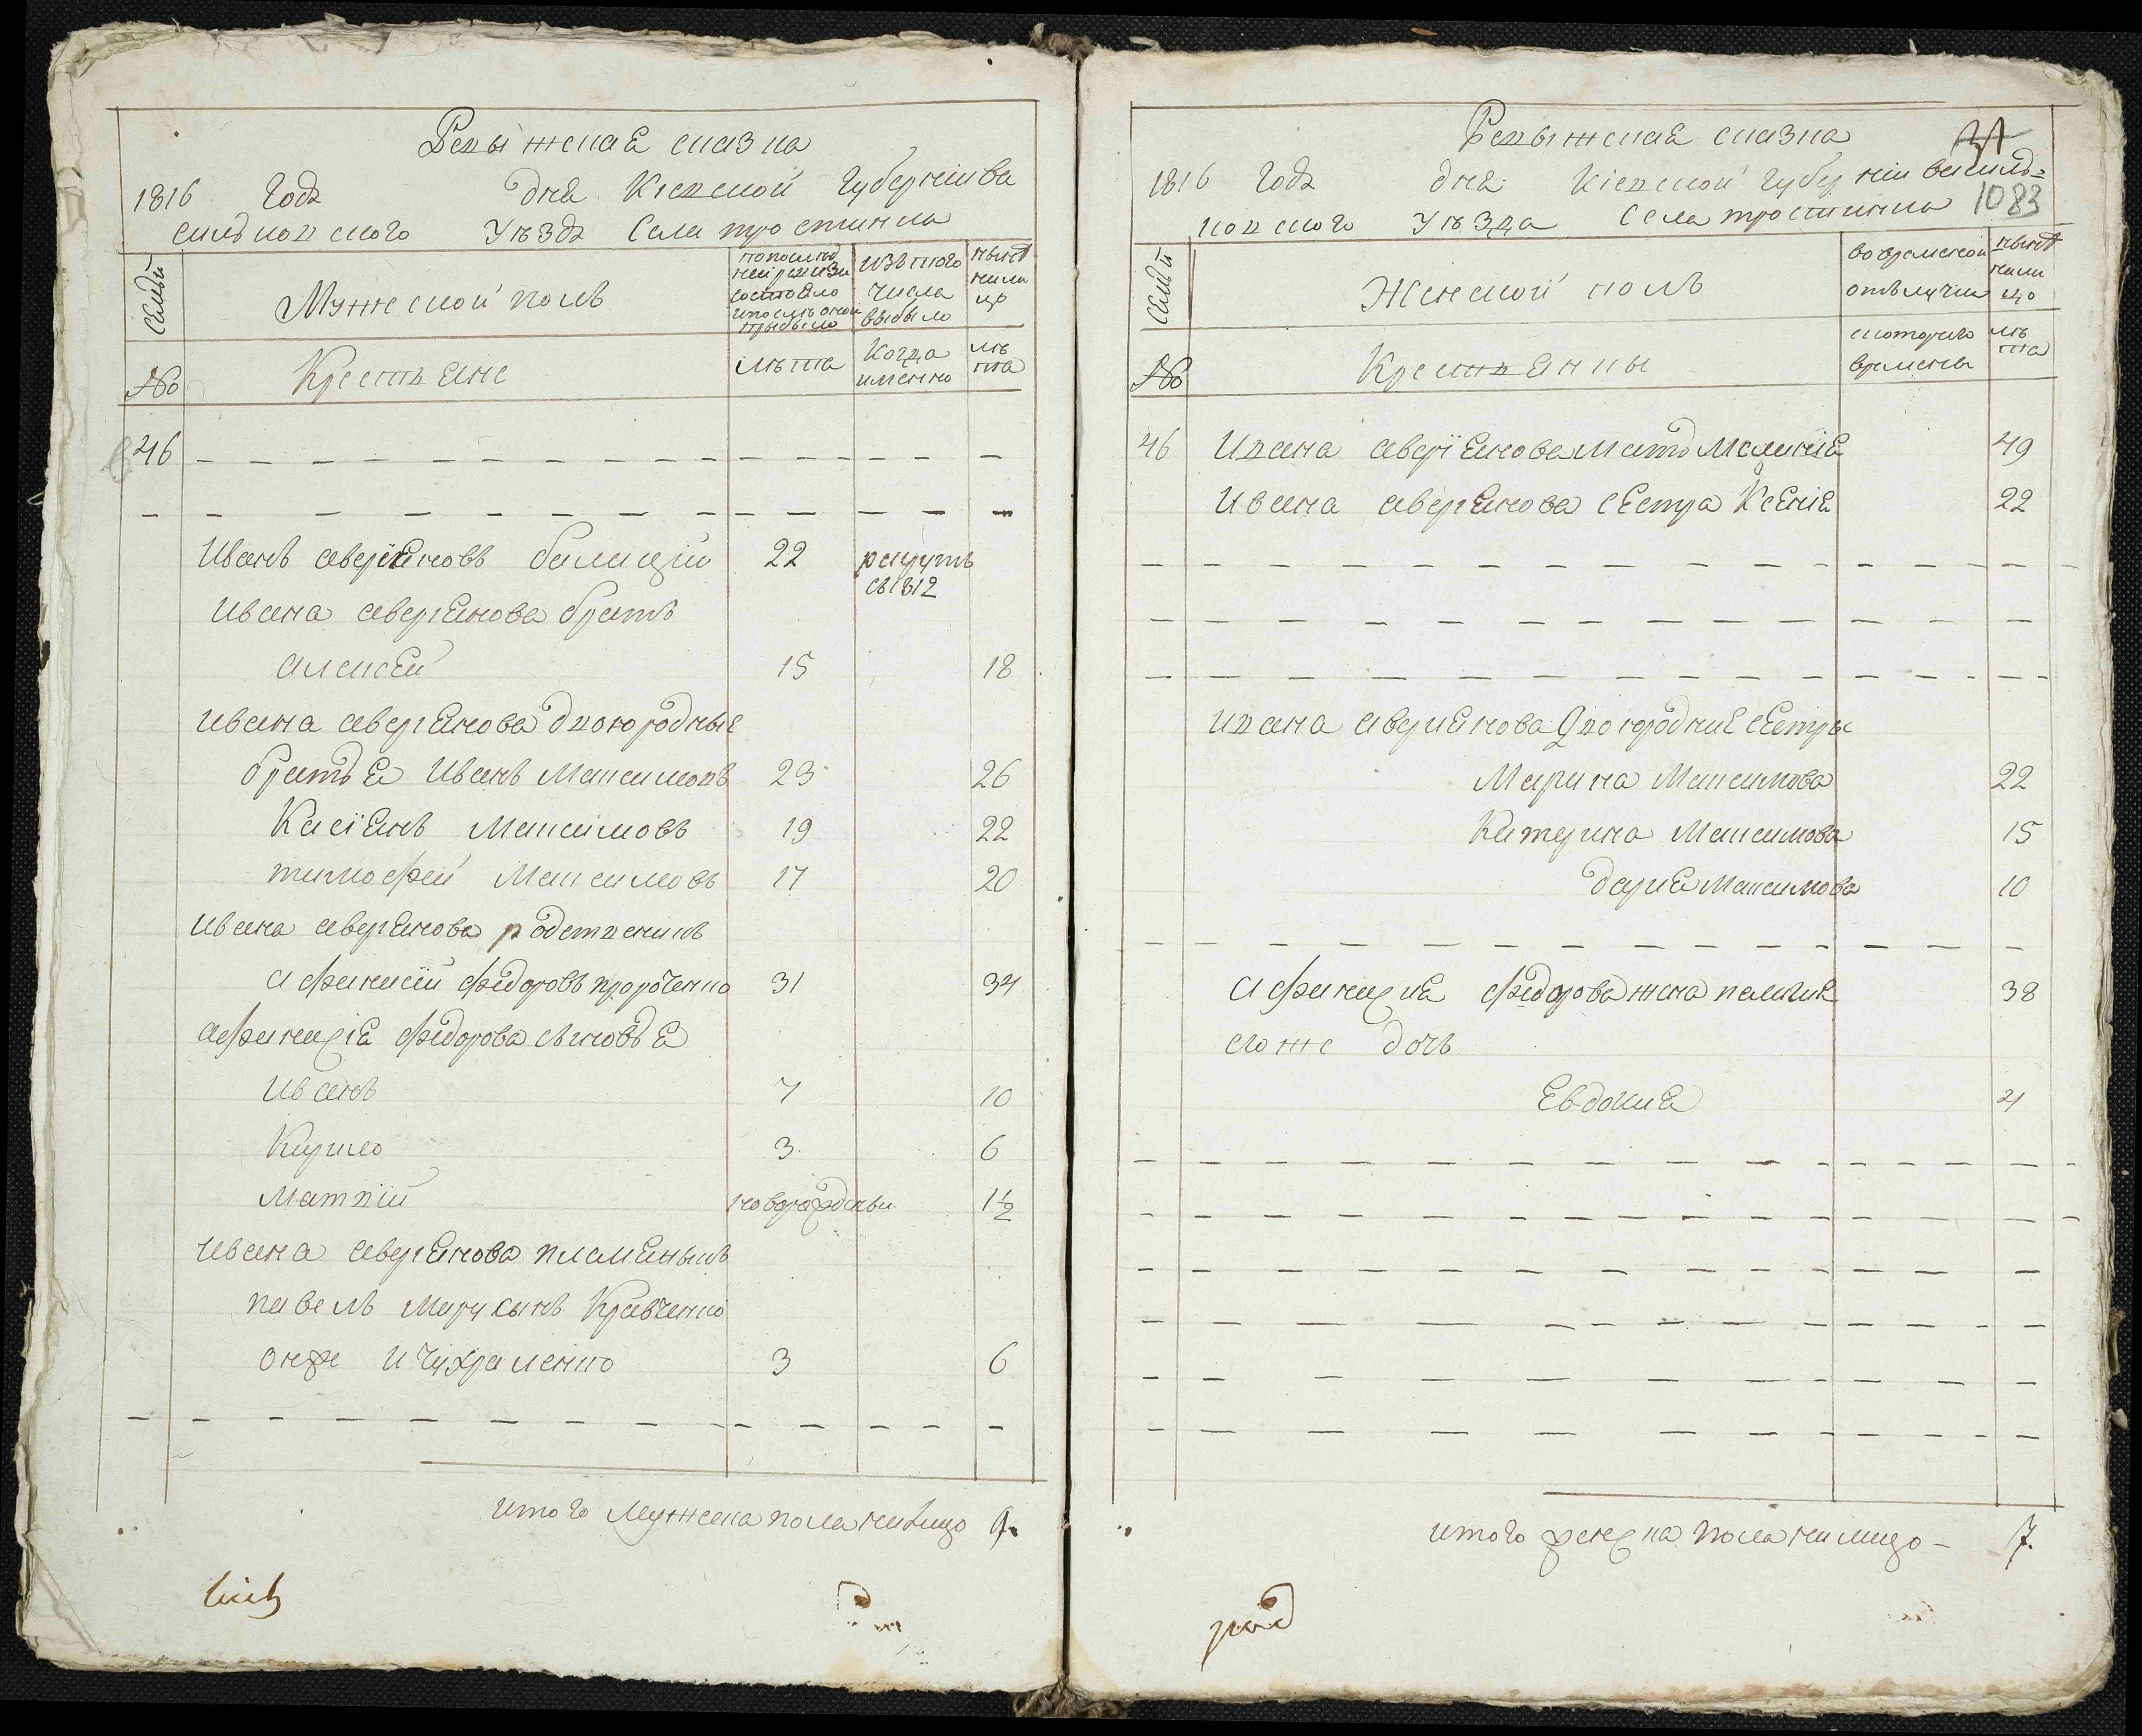 Ревыжская сказка
1816 Годъ дня Кіевской Губерніи ва
сильковского Уѣздъ Села тростинка
Семьи
Мужеской полъ
попослѣд
ней ревизи
состояло
ипослѣ оной
прыбыло
Изъ того
числа
выбыло
нынѣ
нали
цо
№
Крестьяне
лѣта
Когда
именно
лѣ
та
46
Иванъ аверіяновъ билецкій 22 рекрутъ
съ 1812
Ивана аверіянова братъ
Алексей 15 18
Ивана аверіянова двоюродные
братья Иванъ Максимовъ 23 26
Касіянъ Максимовъ 19 22
тимофей Максимовъ 17 20
Ивана аверіянова родственикъ
афанасій федоровъ 31 34
афанасія федорова сыновья
Иванъ 7 10
Кирило 3 6
Матвій новорожденны 1½
Ивана аверіянова племяныкъ
павелъ Кравченко
онже и Чухраменко 3 6
итого Мужеска пола налицо 9.
Ревыжская сказка 31
1816 Годъ дня Кіевской губерніи василь=
ковского Уѣзда Села тростинка 1083
Семьи
Женской полъ
вовременой
отълучки
нынѣ
нали
цо
№
Крестьянки
скоторого
времены
лѣ
та
46 Ивана аверіянова мать Маланія 49
Ивана аверіянова сестра Ксенія 22
Ивана авериянова Двоюродние сестры
Марина Максимова 22
Катерина Максимова 15
дария Максимова 10
афанасия федорова жена 38
егоже дочь
Евдокия 4
итого женска пола налицо - 7.